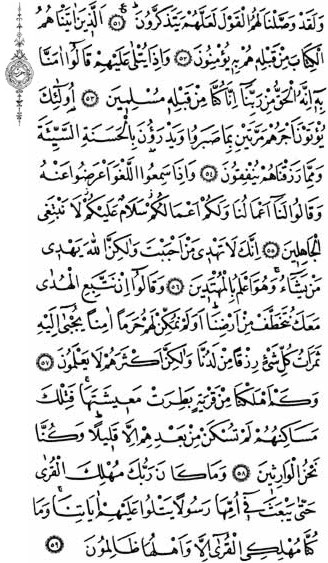 وَلَقَدْ وَصَّلْنَا لَهُمُ الْقَوْلَ لَعَلَّهُمْ يَتَذَكَّرُونَ ﴿٥١﴾ الَّذِينَ اٰتَيْنَاهُمُ
الْكِتَابَ مِنْ قَبْلِهِ هُمْ بِهِ يُؤْمِنُونَ ﴿٥٢﴾ وَاِذَا يُتْلٰى عَلَيْهِمْ قَالُوا اٰمَنَّا
بِهِ اِنَّهُ الْحَقُّ مِنْ رَبِّنَا اِنَّا كُنَّا مِنْ قَبْلِهِ مُسْلِمِينَ ﴿٥٣﴾ اُولٰئِكَ
يُؤْتَوْنَ اَجْرَهُمْ مَرَّتَيْنِ بِمَا صَبَرُوا وَيَدْرَؤُنَ بِالْحَسَنَةِ السَّيِّئَةَ
وَمِمَّا رَزَقْنَاهُمْ يُنْفِقُونَ ﴿٥٤﴾ وَاِذَا سَمِعُوا اللَّغْوَ اَعْرَضُوا عَنْهُ
وَقَالُوا لَنَا اَعْمَالُنَا وَلَكُمْ اَعْمَالُكُمْ سَلَامٌ عَلَيْكُمْ لَا نَبْتَغِى
الْجَاهِلِينَ ﴿٥٥﴾ اِنَّكَ لَا تَهْدِى مَنْ اَحْبَبْتَ وَلٰكِنَّ اللّٰهَ يَهْدِى
مَنْ يَشَاءُ وَهُوَ اَعْلَمُ بِالْمُهْتَدِينَ ﴿٥٦﴾ وَقَالُوا اِنْ نَتَّبِعِ الْهُدٰى
مَعَكَ نُتَخَطَّفْ مِنْ اَرْضِنَا اَوَلَمْ نُمَكِّنْ لَهُمْ حَرَمًا اٰمِنًا يُجْبٰى اِلَيْهِ
ثَمَرَاتُ كُلِّ شَىْءٍ رِزْقًا مِنْ لَدُنَّا وَلٰكِنَّ اَكْثَرَهُمْ لَا يَعْلَمُونَ ﴿٥٧﴾
وَكَمْ اَهْلَكْنَا مِنْ قَرْيَةٍ بَطِرَتْ مَعِيشَتَهَا فَتِلْكَ
مَسَاكِنُهُمْ لَمْ تُسْكَنْ مِنْ بَعْدِهِمْ اِلَّا قَلِيلًا وَكُنَّا
نَحْنُ الْوَارِثِينَ ﴿٥٨﴾ وَمَا كَانَ رَبُّكَ مُهْلِكَ الْقُرٰى
حَتّٰى يَبْعَثَ فِى اُمِّهَا رَسُولًا يَتْلُوا عَلَيْهِمْ اٰيَاتِنَا وَمَا
كُنَّا مُهْلِكِى الْقُرٰى اِلَّا وَاَهْلُهَا ظَالِمُونَ ﴿٥٩﴾